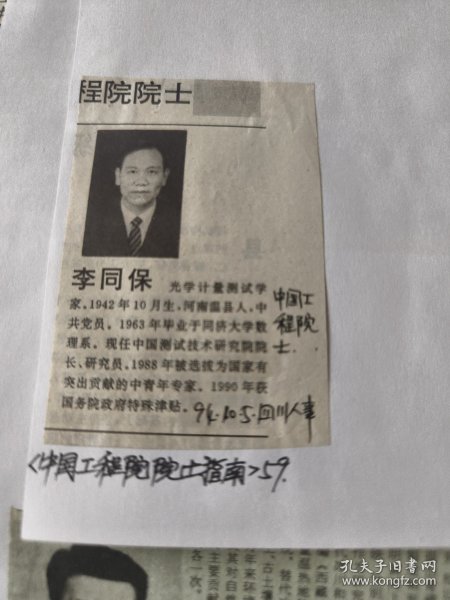 程院院士
李同保 光学计量测试学
家。1942年10月生,河南温县人,中
共党员。1963年毕业于同济大学数
理系。现任中国测试技术研究院院
长、研究员。1988年被选拔为国家有
突出贡献的中青年专家。1990年获
国务院政府特殊津贴。
中国工
程院
士.
94.10.5.四川人事
《中国工程院院士指南》59.
孔夫子旧书网